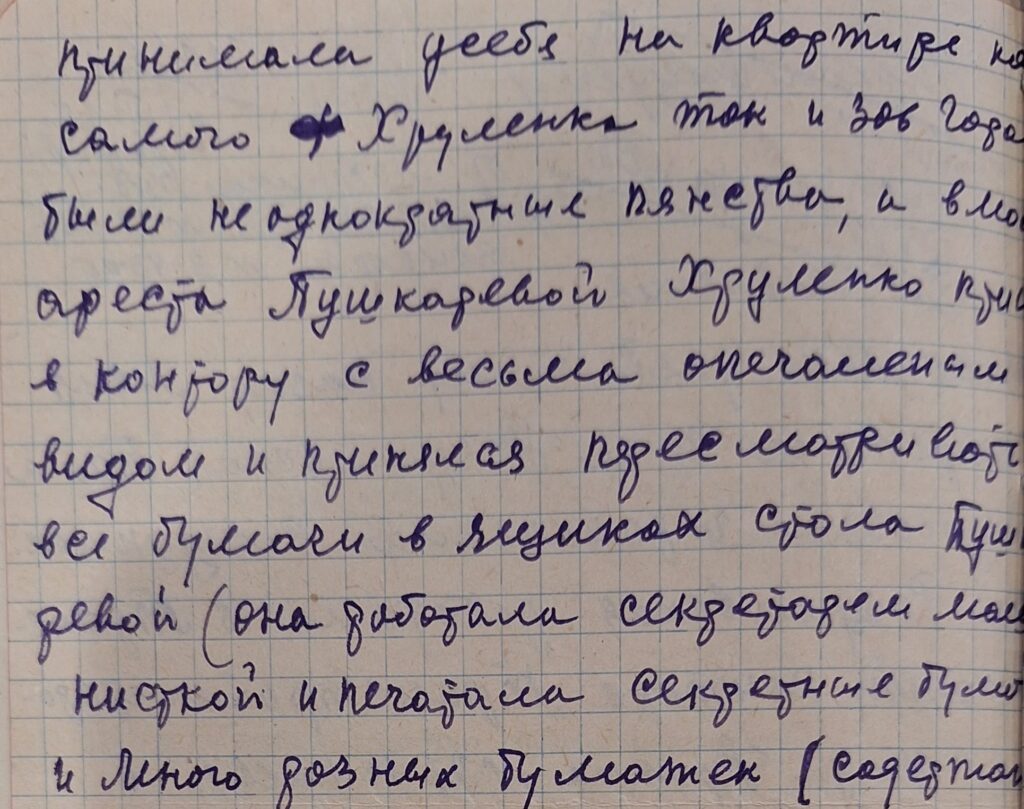 принимала усебя на квартире
самого Хруленка так и зав Гора
были неоднократные пянства, и в мо
ареста Пушкаревой Хруленко при
в контору с весьма опечаленым
видом и принялся пересматривать
все бумаги в ящиках стола Пушка
ревой (она работала секретарем маш
нисткой и печатала секретные бума
и много разных бумажек (содержан